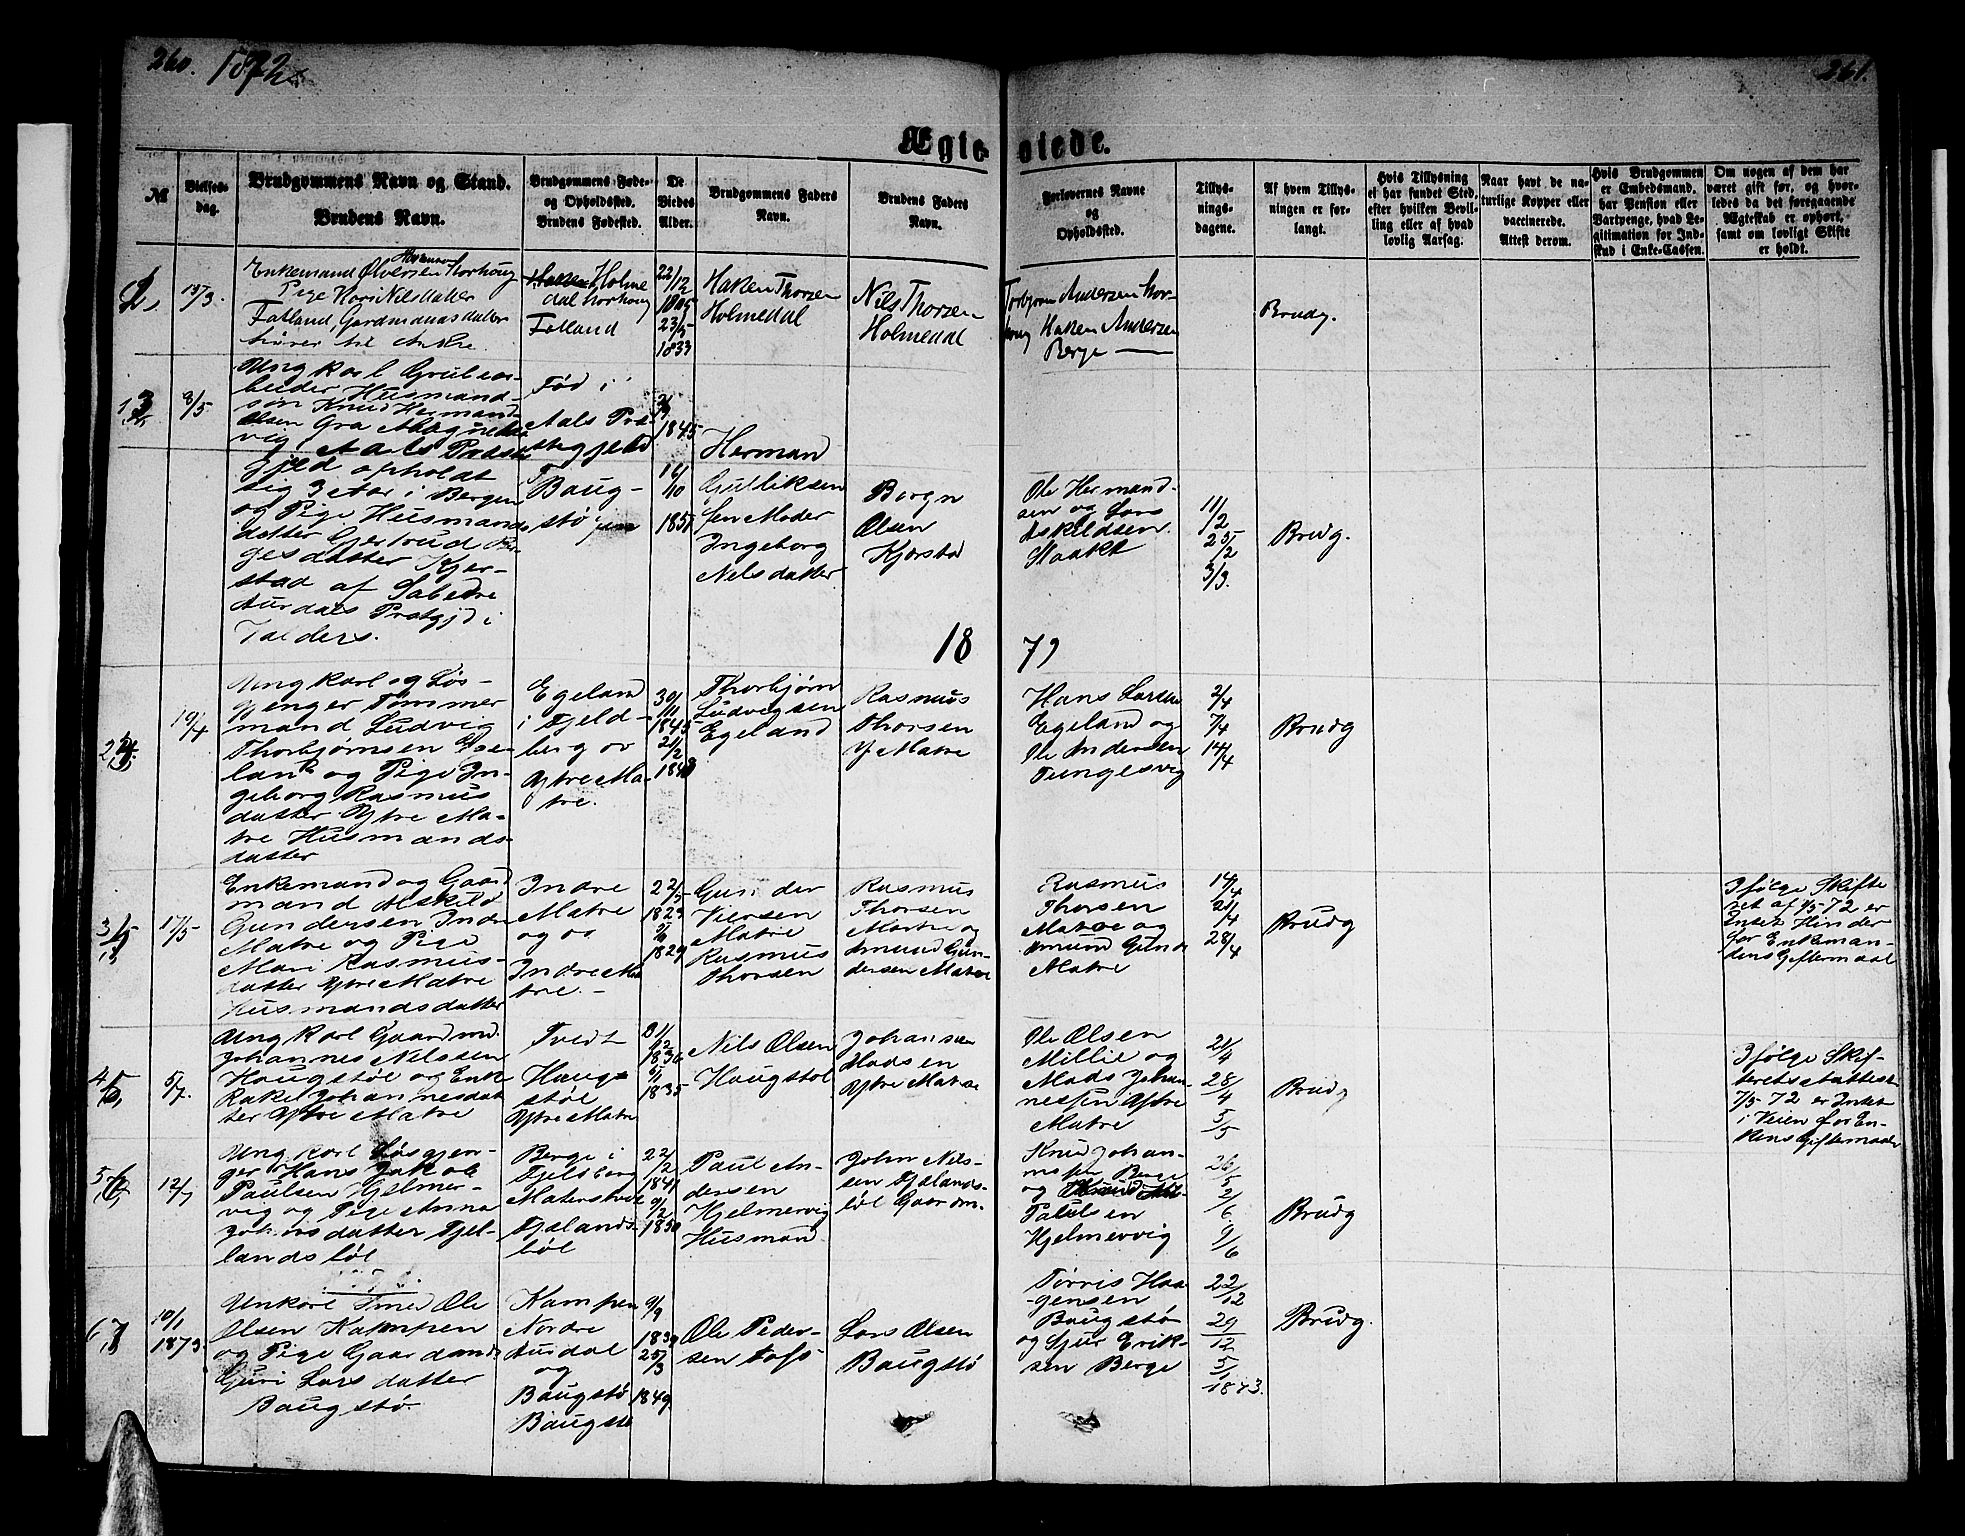 260. 1872.
261.
Ægteviede.
№
Vielses-
dag.
Brudgommens Navn og Stand.
Brudens Navn.
Brudgommens Føde-
og Opholdssted.
Brudens Fødested.
De
Viedes
Alder.
Brudgommens Faders
Navn.
Brudens Faders
Navn.
Forlovernes Navne
og
Opholdssted.
Tillys-
nings-
dagene.
Af hvem Tillys-
ningen er for-
langt.
Hvis Tillysning
ei har fundet Sted,
efter hvilken Bevil-
ling eller af hvad
lovlig Aarsag.
Naar havt de na-
turlige Kopper eller
vaccinerede.
Attest derom.
Hvis Brudgommen
er Embedsmand,
har Pension eller
Vartpenge, hvad Le-
gitimation for Ind-
skud i Enke-Cassen.
Om nogen af dem har
været gift før, og hvor-
ledes da det foregaaende
Ægteskab er ophørt,
samt om lovligt Skifte
er holdt.
2,
13/3.
Enkemand Thorhoug
Pige Kari Nilsdatter
Fatland, Gardmandsdatter
hører til
Holme
dal Thorhoug
Fatland
22/12
1805
23/5
1833
Haken Thorsen
Holmedal
Nils Thorsen
Holmedal
Torbjørn Andersen Thor-
houg Haken Andersen
Berge
Brudg.
1,
8/5
Ungkarl Grubear-
beider Husmand-
søn Knud Hermand-
Olsen Gra
vig Aals Præste
gjeld opholdt
sig 3 Aar i Bergen
og Pige Husmands
datter Gertrud Bør-
gesdatter Kjør-
stad af Sabedre
Aurdals Prstgjd i
Valders.
Fød i
Aals Præ-
stegjeld
Baug-
stø
1845
16/10
1851
Herman
Gulliksen
Moder
Ingeborg
Nelsdatter
Borgn
Olsen
Kjørstad
Ole Hermand-
sen og Lars
Askildsen
Staakt
11/2
25/2
3/3.
Brudg.
18 72
2
19/4
Ungkarl og Løs-
gjenger Tømmer
mand Ludvig
Thorbjørnsen Ege-
land og Pige In-
geborg Rasmus
datter Ytre Ma-
tre Husmands-
datter
Egeland
i Fjeld-
berg ov
Ytre Ma-
tre.
30/11
1845
21/2
1848
Thorbjørn
Ludvigsen
Egeland
Rasmus
Thorsen
Y Matre
Hans Larsen
Egeland og
Ole Andersen
Tungesvig
2/4
7/4
14/4
Brudg
3
17/5
Enkemand og Gaard
mand Askild
Gundersen Indre
Matre og Pige
Mari Rasmus-
datter Ytre Matre
Husmandsdatter
Indre
Matre
og
Indre Ma
tre.-
22/5
1823
1829
Gunder
Viersen
Matre
Rasmus
Thorsen
Rasmus
Thorsen
Matre og
Amund Gun-
dersen Matre
Rasmus
Thorsen
Matre og
Amund Gunde
Matre
14/4
21/4
28/4
Brudg
Ifølge Skifte
ret af 7/5 72 er
Intet Hinder
for Enkeman-
dens Giftermaal
4
5/7.
Ungkarl Gaardmd.
Johannes Nilssen
Haugstøl og Enke
Rakel Johannesdat
ter Ytre Matre
Tvedt
Haug-
støl
Ytre Matre
31/12
1836
1835
Nils Olsen
Haugstøl
Johansen
Madsen
Ytre Matre
Ole Olsen
Millie og
Mads Johan-
nessen Ytre
Matre
21/4
28/4
5/5
Brudg
Ifølge Skif-
terets Attest
7/5 72 er Intet
i Veien for En-
kens Giftermaal
5
12/7
Ungkarl Løsgjen-
ger Hans Jakob
Paulsen Hjelmer-
vig og Pige Anna
Johnsdatter Fjel-
landsbøl
Berge i
Fjelberg
Fjelands-
bøl
22/2
1841
9/2
1850
Paul An-
dersen
Hjelmervig
Husmand
John Nils-
sen Fjelands-
bøl Gaardm.
Knud Johan-
nesen Berge
og
Paulsen
Hjelmervig
26/5
2/6
9/6
Brudg
6
10/1
1873.
Unkarl Smed Ole
Olsen Kampen
og Pige Gaardmands
Guri Larsdatter
Baugstø.
Kampen
Nordre
Aurdal
og
Baugstø
Baugstø
9/9
1839
25/3
1849
Ole Peder-
sen
Lars Olsen
Baugstø
Tørris Haa
gensen
Baugstø
og Sjur Erik-
sen Berge
22/12
29/12
5/1
1873.
Brudg.